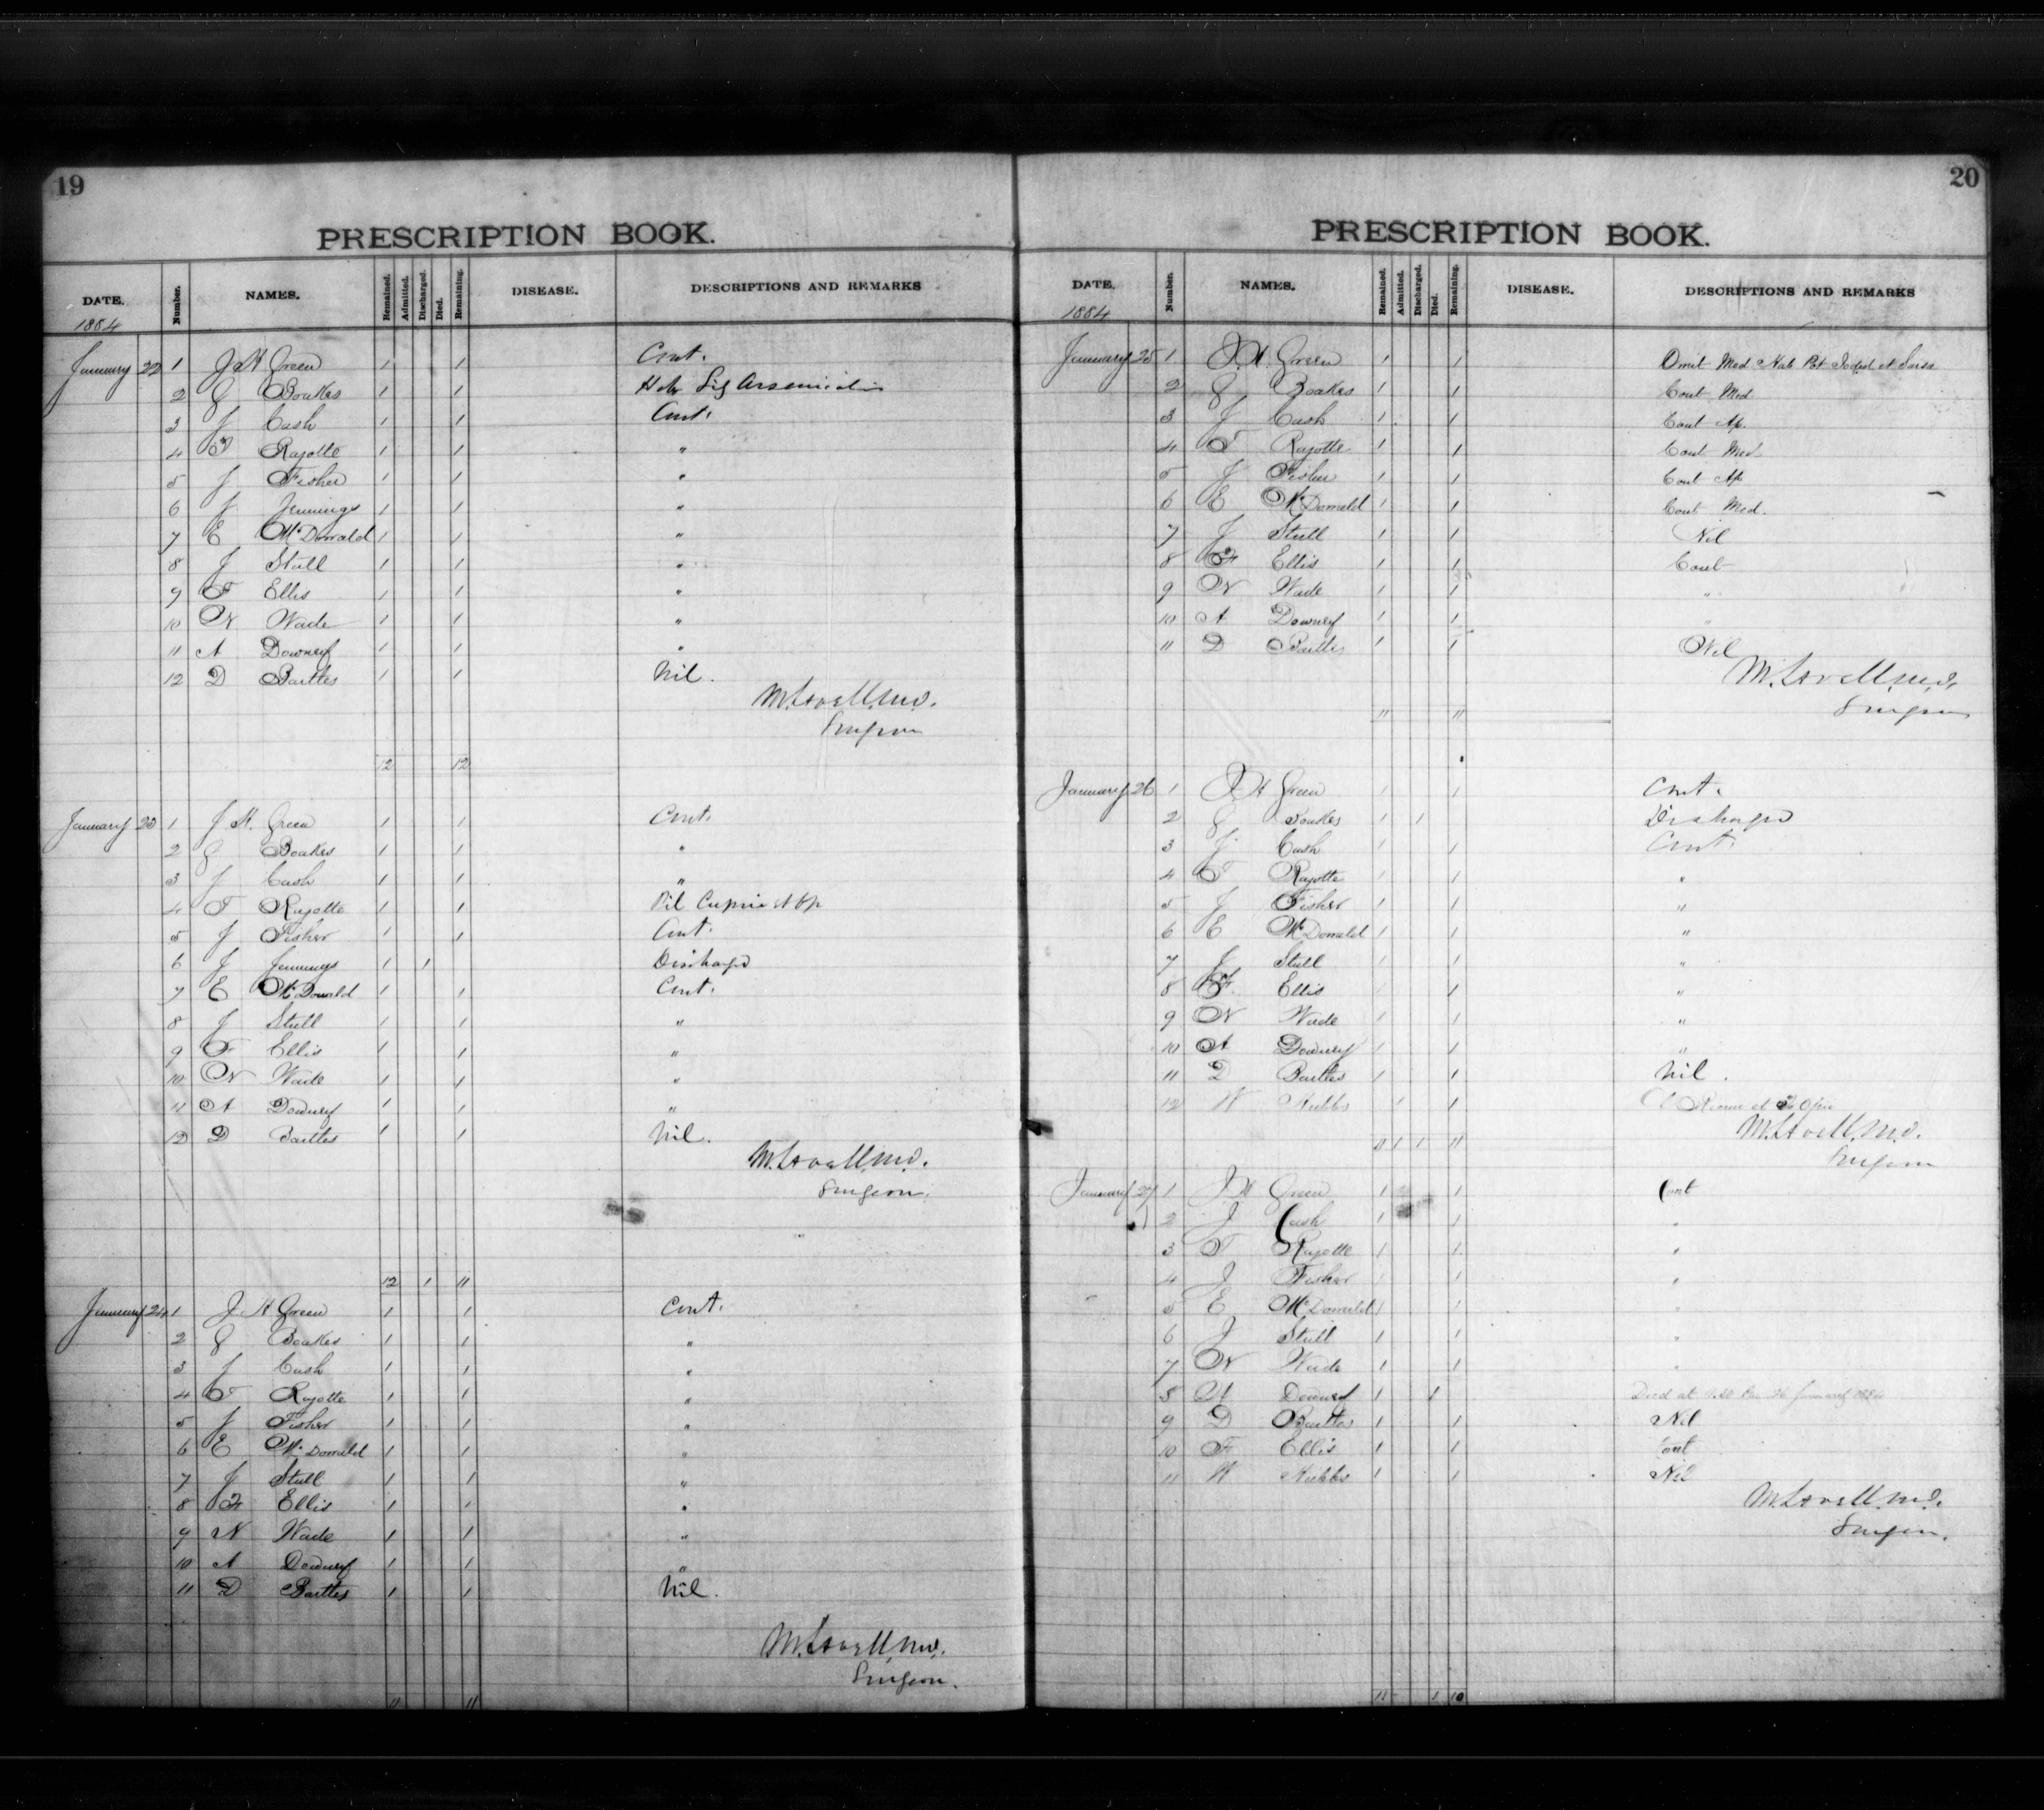 19
PRESCRIPTION BOOK.
DATE. Number. NAMES. Remained. Admitted. Discharged. Died. Remaining. DISEASE. DESCRIPTIONS AND REMARKS
1884
January 22 1 J H Green 1 1 Cont.
2 G Boakes 1 1 Arsenicalis
3 J Cash 1 1 Cont.
4 T Rajotte 1 1 "
5 J Fisher 1 1 "
6 J Jennings 1 1 "
7 E McDonald 1 1 "
8 J Stull 1 1 "
9 F Ellis 1 1 "
10 N Wade 1 1 "
11 A Downey 1 1 "
12 D Bartles 1 1 Nil.
M. Lavell, M.D.
Surgeon
12 12
January 23 1 J H. Green 1 1 Cont.
2 G Boakes 1 1 "
3 J Cash 1 1 "
4 T Rajotte 1 1 Pil
5 J Fisher 1 1 Cont.
6 J Jennings 1 1 Discharged
7 E McDonald 1 1 Cont.
8 J Stull 1 1 "
9 F Ellis 1 1 "
10 N Wade 1 1 "
11 A Downey 1 1 "
12 D Bartles 1 1 Nil.
M. Lavell, M.D.
Surgeon.
12 1 11
January 24 1 J H Green 1 1 Cont.
2 G Boakes 1 1 "
3 J Cash 1 1 "
4 T Rajotte 1 1 "
5 J Fisher 1 1 "
6 E McDonald 1 1 "
7 J Stull 1 1 "
8 F Ellis 1 1 "
9 N Wade 1 1 "
10 A Downey 1 1 "
11 D Bartles 1 1 Nil.
M. Lavell, M.D.
Surgeon.
11 11
20
PRESCRIPTION BOOK.
DATE. Number. NAMES. Remained. Admitted. Discharged. Died. Remaining. DISEASE. DESCRIPTIONS AND REMARKS
1884
January 25 1 J. H. Green 1 1 Omit Med Hab Pot Iodid et Sarsa
2 G Boakes 1 1 Cont Med
3 J Cash 1 1 Cont Ap.
4 T Rajotte 1 1 Cont Med
5 J Fisher 1 1 Cont Ap
6 E McDonald 1 1 Cont Med.
7 J Stull 1 1 Nil
8 F Ellis 1 1 Cont
9 N Wade 1 1 "
10 A Downey 1 1 "
11 D Bartles 1 1 Nil
M. Lavell, M.D.
Surgeon
11 11
January 26 1 J H Green 1 1 Cont.
2 G Boakes 1 1 Discharged
3 J Cash 1 1 Cont.
4 T Rajotte 1 1 "
5 J Fisher 1 1 "
6 E McDonald 1 1 "
7 J Stull 1 1 "
8 F Ellis 1 1 "
9 N Wade 1 1 "
10 A Downey 1 1 "
11 D Bartles 1 1 Nil.
12 W Hubbs 1 1
M. Lavell, M.D.
Surgeon
11 1 1 11
January 27 1 J H Green 1 1 Cont
2 J Cash 1 1 "
3 T Rajotte 1 1 "
4 J Fisher 1 1 "
5 E McDonald 1 1 "
6 J Stull 1 1 "
7 N Wade 1 1 "
8 A Downey 1 1 Died at 26 January 1884
9 D Bartles 1 1 Nil
10 F Ellis 1 1 Cont
11 W Hubbs 1 1 Nil
M. Lavell, M.D.
Surgeon.
11 1 10